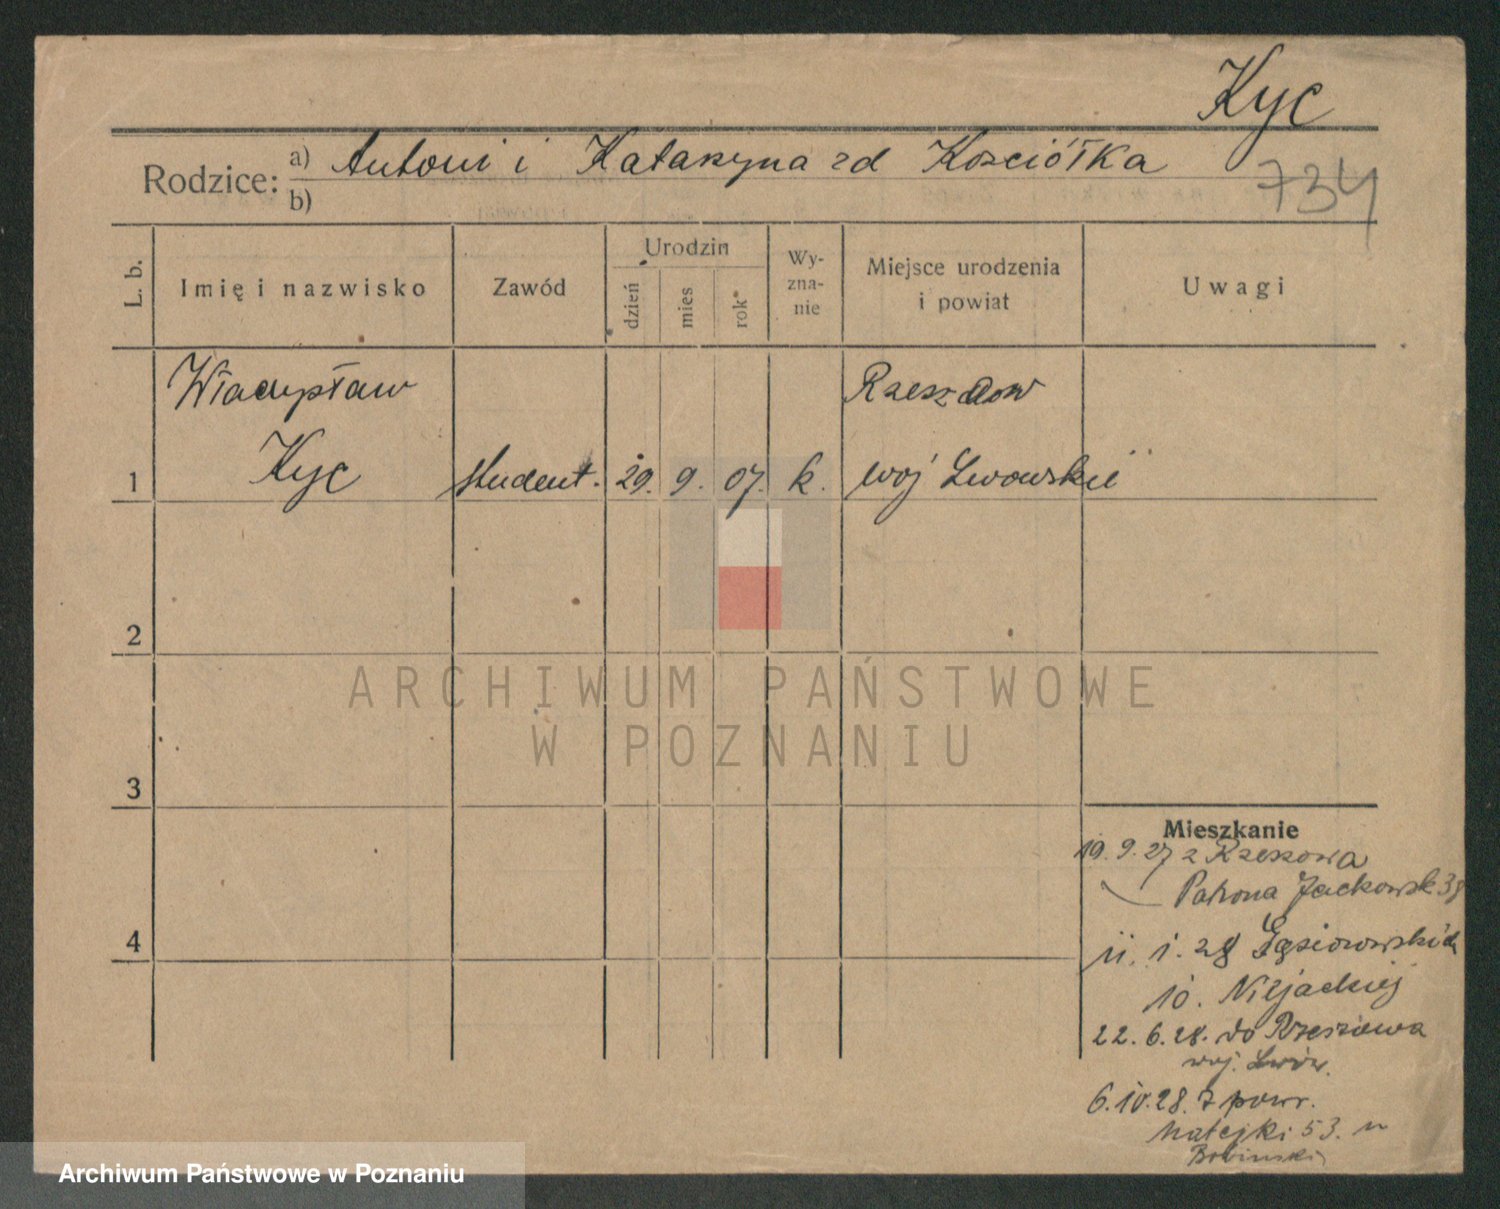 Kyc
Rodzice: a) Antoni i Katarzyna zd Kościółka
b)
734
L. b.
Imię i nazwisko
Zawód
Urodzin
dzień
mies
rok
Wy-
zna-
nie
Miejsce urodzenia
i powiat
Uwagi
Władysław
Kyc
1
student.
29. 9. 07.
k.
Rzeszów
woj Lwowskie
2
3
4
ARCHIWUM PAŃSTWOWE
W POZNANIU
Mieszkanie
19. 9. 27 z Rzeszowa
Patrona Jackowsk
11. 1. 28 Gąsiorowskich
10.
22. 6. 28. do Rzeszowa
woj. Lwów.
6.10.28. z powr.
Matejki 53. u
Archiwum Państwowe w Poznaniu